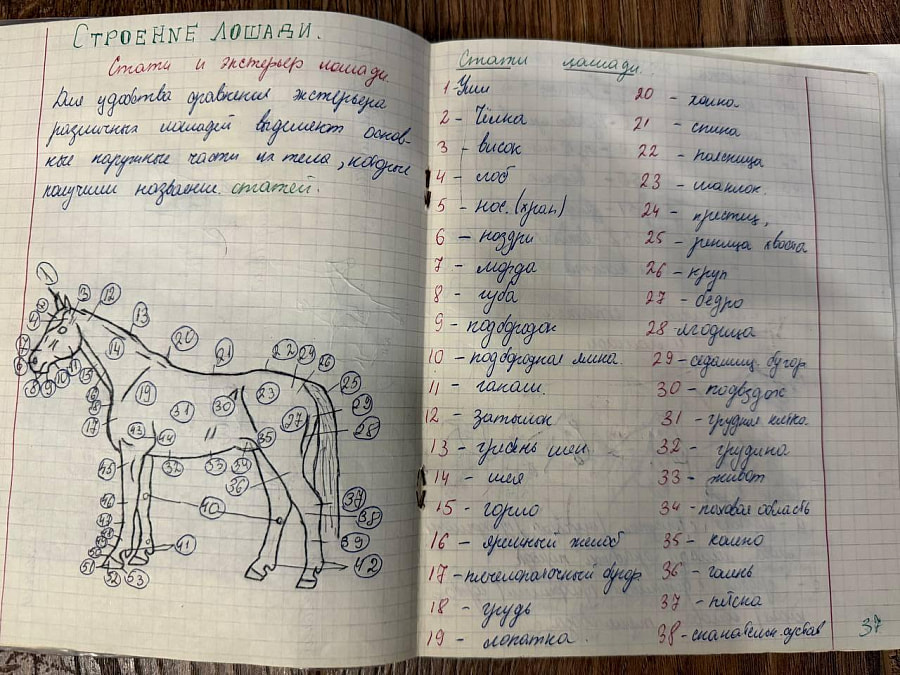 СТРОЕНИЕ ЛОШАДИ.
Стати и экстерьер лошади
Для удобства сравнения экстерьера
различных лошадей выделяют основ-
ные наружные части их тела, которые
получили название статей.
1
2
3
12
13
14
20
21
22
24
26
25
29
28
23
30
19
31
27
17
43
44
35
45
32
33
34
36
46
47
40
37
38
39
41
42
51
52
53
Стати лошади.
1 Уши
2 - Чёлка
3 - висок
4 - лоб
5 - нос. (храп)
6 - ноздри
7 - морда
8 - губа
9 - подбородок
10 - подбородная ямка
11 - ганаш
12 - затылок
13 - гребень шеи
14 - шея
15 - горло
16 - яремный желоб
17 - плечелопаточный бугор
18 - грудь
19 - лопатка.
20 - холка
21 - спина
22 - поясница
23 - маклок.
24 - крестец,
25 - репица хвоста
26 - круп
27 - бедро
28 - ягодица
29 - седалищ. бугор
30 - подвздох
31 - грудная клетка.
32 - грудина
33 - живот
34 - паховая область
35 - колено
36 - голень
37 - пятка
38 - скакательн. сустав
37